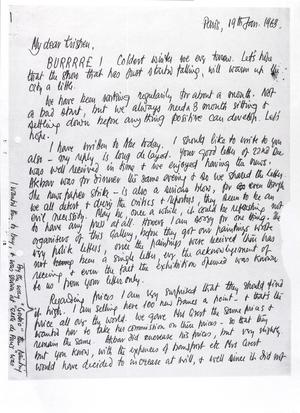 Paris, 19th Jan. 1963.
My dear Krishen,
BURRRRE! Coldest winter we ever knew. Let's hope
that the snow that has just started falling, will warm up the
city a little.
We have been working regularly for about a month. Not
a bad start, but we always need a month sitting &
settling down before any thing positive can develop. Let's
hope.
I have written to the today. I should like to write to you
also - my reply is long delayed. Your good letter of 22nd Dec.
was well received in time & we enjoyed having the news.
Akbar was for dinner the same evening & so we shared the letter.
The news paper strike - is also a serious blow, for even though
we all detest & deny the critics & reporters, they seem to be an
evil necessity. May be, once a while, it could be refreshing not
to have any press at all. However I am sorry for one thing, the
organisers of this gallery, before they got our paintings wrote
very polite letters, once the paintings were received there has
not been a single letter eg. the acknowledgement of
receiving & even the fact the exhibition opened was known
to us from your letter only.
Regarding prices I am very surprised that they should find
it high. I am selling here 100 new francs a point - & that is the
price all over the world. We gave Mrs Grost the same prices &
wanted her to take her commission on these prices - so that they
remain the same. Akbar did increase his prices, but very slightly,
but you know, with the expenses of transport etc Mrs Grost
would have decided to increase as well, & well since she did not